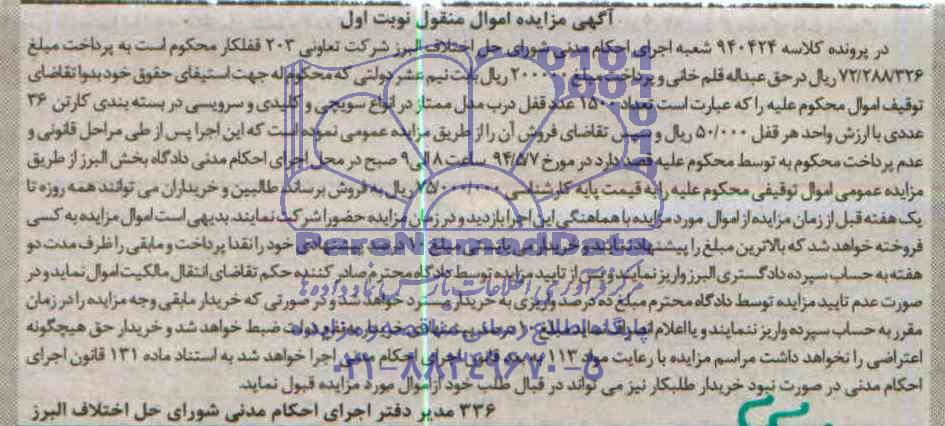 آگهی مزایده اموال منقول نوبت اول
در پرونده کلاسه ۹۴۰۴۲۴ شعبه اجرای احکام مدنی شورای حل اختلاف البرز شرکت تعاونی ۲۰۳ قفلکار محکوم است به پرداخت مبلغ
۷۲/۲۸۸/۳۲۶ ریال در حق عبداله قلم خانی و پرداخت مبلغ ریال بابت نیم عشر دولتی که محکوم له جهت استیفای حقوق خود بدوا تقاضای
توقیف اموال محکوم علیه را که عبارت است تعداد ۱۵۰۰ عدد قفل درب مدل ممتاز در انواع سویچی و کلیدی و سرویسی در بسته بندی کارتن ۳۶
عددی با ارزش واحد هر قفل ۵۰/۰۰۰ ریال و سپس تقاضای فروش آن را از طریق مزایده عمومی نموده است که این اجرا پس از طی مراحل قانونی و
عدم پرداخت محکوم به توسط محکوم علیه قصد دارد در مورخ ۹۴/۵/۷ ساعت ۸ الی ۹ صبح در محل اجرای احکام مدنی دادگاه بخش البرز از طریق
مزایده عمومی اموال توقیفی محکوم علیه را به قیمت پایه کارشناسی ۷۵/۰۰۰/۰۰۰ ریال به فروش برساند طالبین و خریداران می توانند همه روزه تا
یک هفته قبل از زمان مزایده از اموال مورد مزایده با هماهنگی این اجرا بازدید و در زمان مزایده حضورا شرکت نمایند بدیهی است اموال مزایده به کسی
فروخته خواهد شد که بالاترین مبلغ را پیشنهاد نماید و خریدار می بایستی مبلغ ۱۰ درصد پیشنهادی خود را نقدا پرداخت و مابقی را ظرف مدت دو
هفته به حساب سپرده دادگستری البرز واریز نمایند و پس از تایید مزایده توسط دادگاه محترم صادر کننده حکم تقاضای انتقال مالکیت اموال نماید و در
صورت عدم تایید مزایده توسط دادگاه محترم مبلغ ده درصد واریزی به خریدار مسترد خواهد شد و در صورتی که خریدار مابقی وجه مزایده را در زمان
مقرر به حساب سپرده واریز ننمایند و یا اعلام انصراف نماید مبلغ ۱۰ درصد پیشنهادی خریدار به نفع دولت ضبط خواهد شد و خریدار حق هیچگونه
اعتراضی را نخواهد داشت مراسم مزایده با رعایت مواد ۱۱۳ به بعد قانون اجرای احکام مدنی اجرا خواهد شد به استناد ماده ۱۳۱ قانون اجرای
احکام مدنی در صورت نبود خریدار طلبکار نیز می تواند در قبال طلب خود از اموال مورد مزایده قبول نماید.
۳۳۶ مدیر دفتر اجرای احکام مدنی شورای حل اختلاف البرز
ParsNamadData
مرکز فرآوری اطلاعات پارس نماد داده ها
پایگاه اطلاع رسانی مناقصه و مزایده
۰۲۱-۸۸۳۴۹۶۷۰-۵